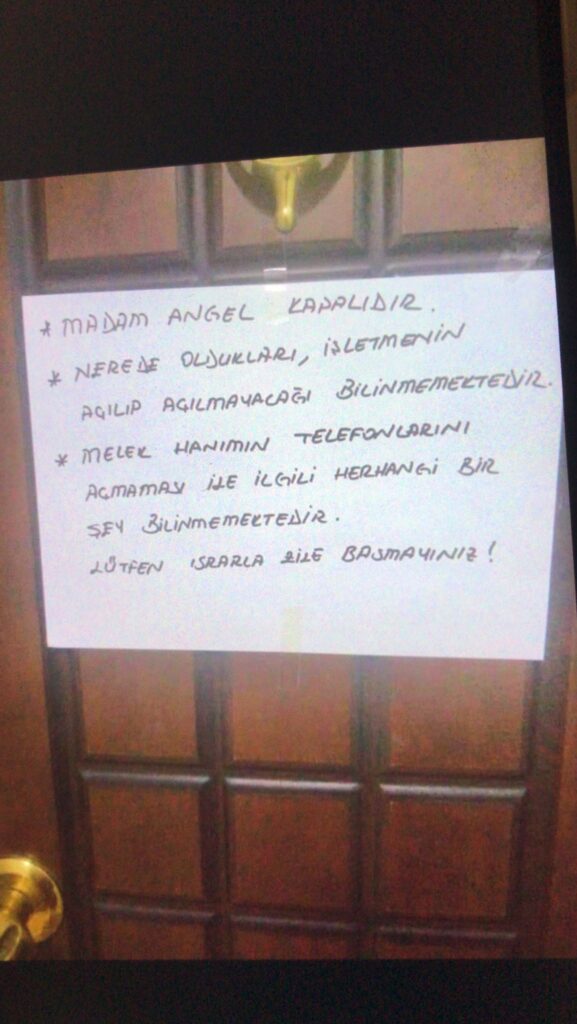 * MADAM ANGEL KAPALIDIR.
* NEREDE OLDUKLARI, İŞLETMENİN
AÇILIP AÇILMAYACAĞI BİLİNMEMEKTEDİR.
* MELEK HANIMIN TELEFONLARINI
AÇMAMASI İLE İLGİLİ HERHANGİ BİR
ŞEY BİLİNMEMEKTEDİR.
LÜTFEN ISRARLA ZİLE BASMAYINIZ!